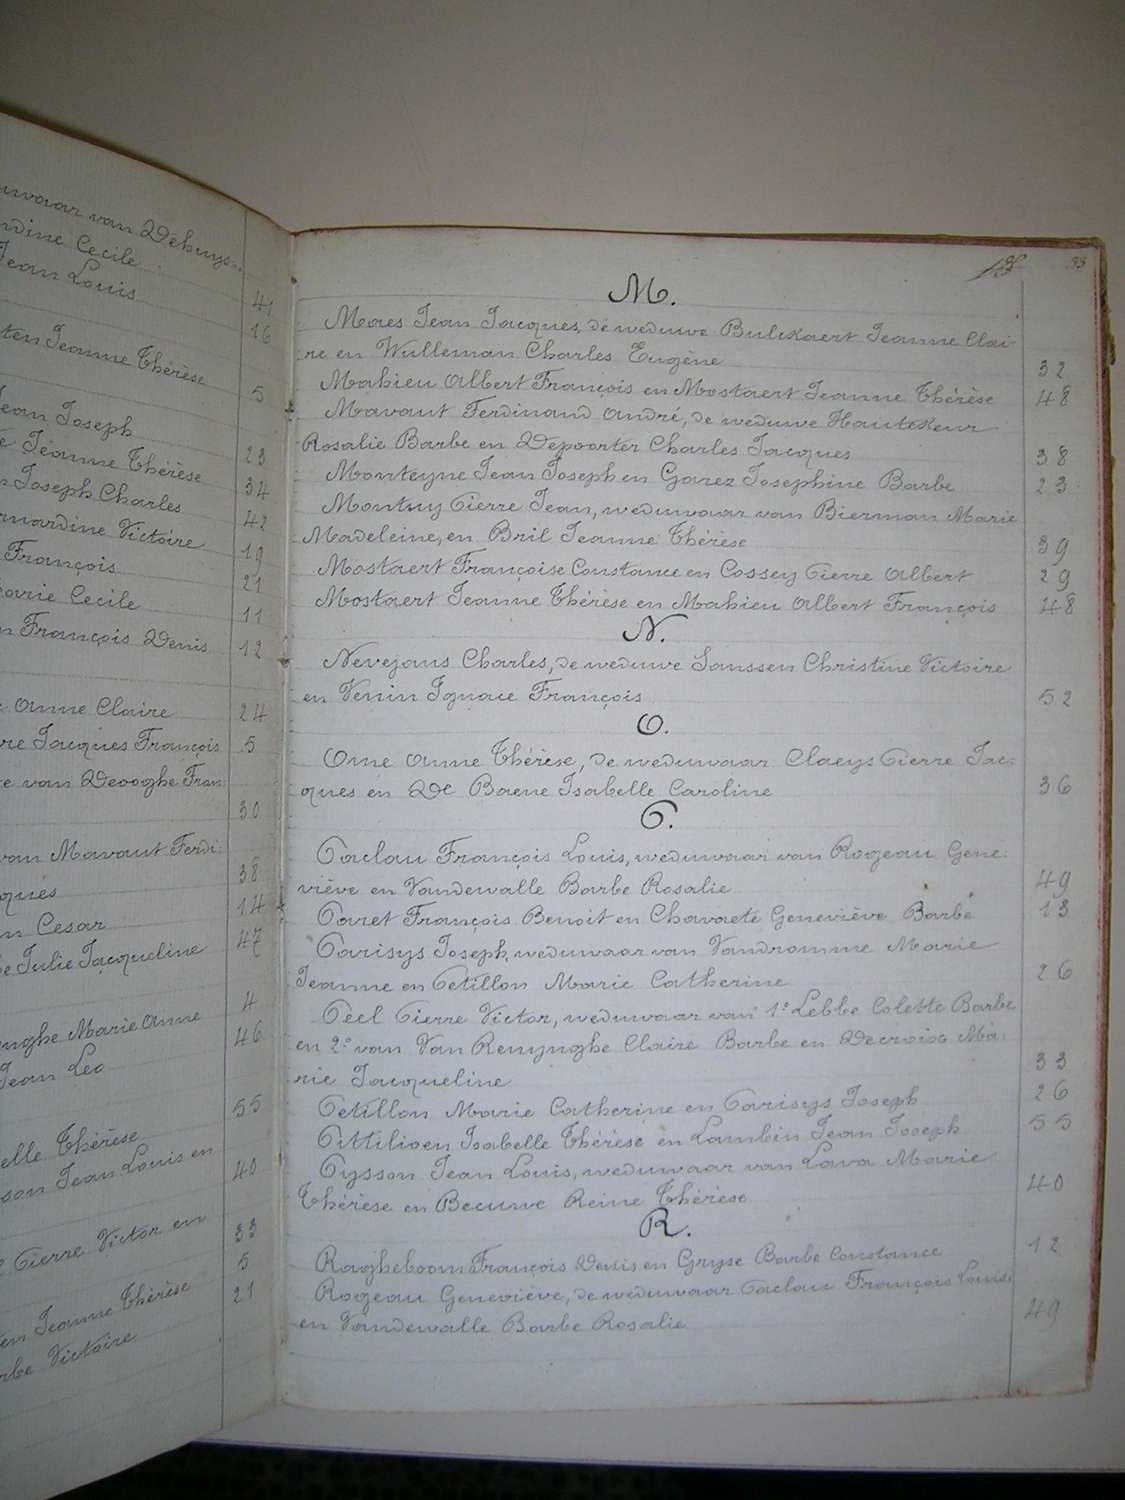 uwaar van Dehuys-
ndine Cecile
Jean Louis 41
16
ten Jeanne Thérèse 5
Jean Joseph 23
Jeanne Thérèse 34
n Joseph Charles 42
rnardine Victoire 19
François 21
arie Cecile 11
n François Denis 12
Anne Claire 24
re Jacques François 5
e van Devooghe Fran:
30
van Mavaut Ferdi-
ques 38
n Cesar 14
e Julie Jacqueline 47
4
nghe Marie Anne 46
Jean Leo
55
elle Thérèse
son Jean Louis en 40
Pierre Victor en 33
5
en Jeanne Thérèse 21
rbe Victoire
33
M.
Maes Jean Jacques, de weduwe Bulckaert Jeanne Clai-
re en Wulleman Charles Eugène 32
Mahieu Albert François en Mostaert Jeanne Thérèse 48
Mavaut Ferdinand André, de weduwe Hautekeur
Rosalie Barbe en Depoorter Charles Jacques 38
Monteyne Jean Joseph en Garez Josephine Barbe 23
Montuy Pierre Jean, weduwaar van Bierman Marie
Madeleine, en Bril Jeanne Thérèse 39
Mostaert Françoise Constance en Cossey Pierre Albert 29
Mostaert Jeanne Thérèse en Mahieu Albert François 48
N.
Nevejans Charles, de weduwe Janssen Christine Victoire
en Venin Ignace François 52
O.
Ome Anne Thérèse, de weduwaar Claeys Pierre Jac-
ques en De Baene Isabelle Caroline 36
P.
Paclau François Louis, weduwaar van Rogeau Gene-
viève en Vandewalle Barbe Rosalie 49
Paret François Benoit en Chavaete Geneviève Barbe 13
Parisys Joseph, weduwaar van Vandromme Marie
Jeanne en Petillon Marie Catherine 26
Peel Pierre Victor, weduwaar van 1° Lebbe Colette Barbe
en 2° van Van Renynghe Claire Barbe en Decroix Ma-
rie Jacqueline 33
Petillon Marie Catherine en Parisys Joseph 26
Pittilioen Isabelle Thérèse en Lambin Jean Joseph 55
Pysson Jean Louis, weduwaar van Lava Marie
Thérèse en Becuwe Reine Thérèse 40
R.
Ragheboom François Denis en Gryse Barbe Constance 12
Rogeau Geneviève, de weduwaar Paclau François Louis
en Vandewalle Barbe Rosalie 49